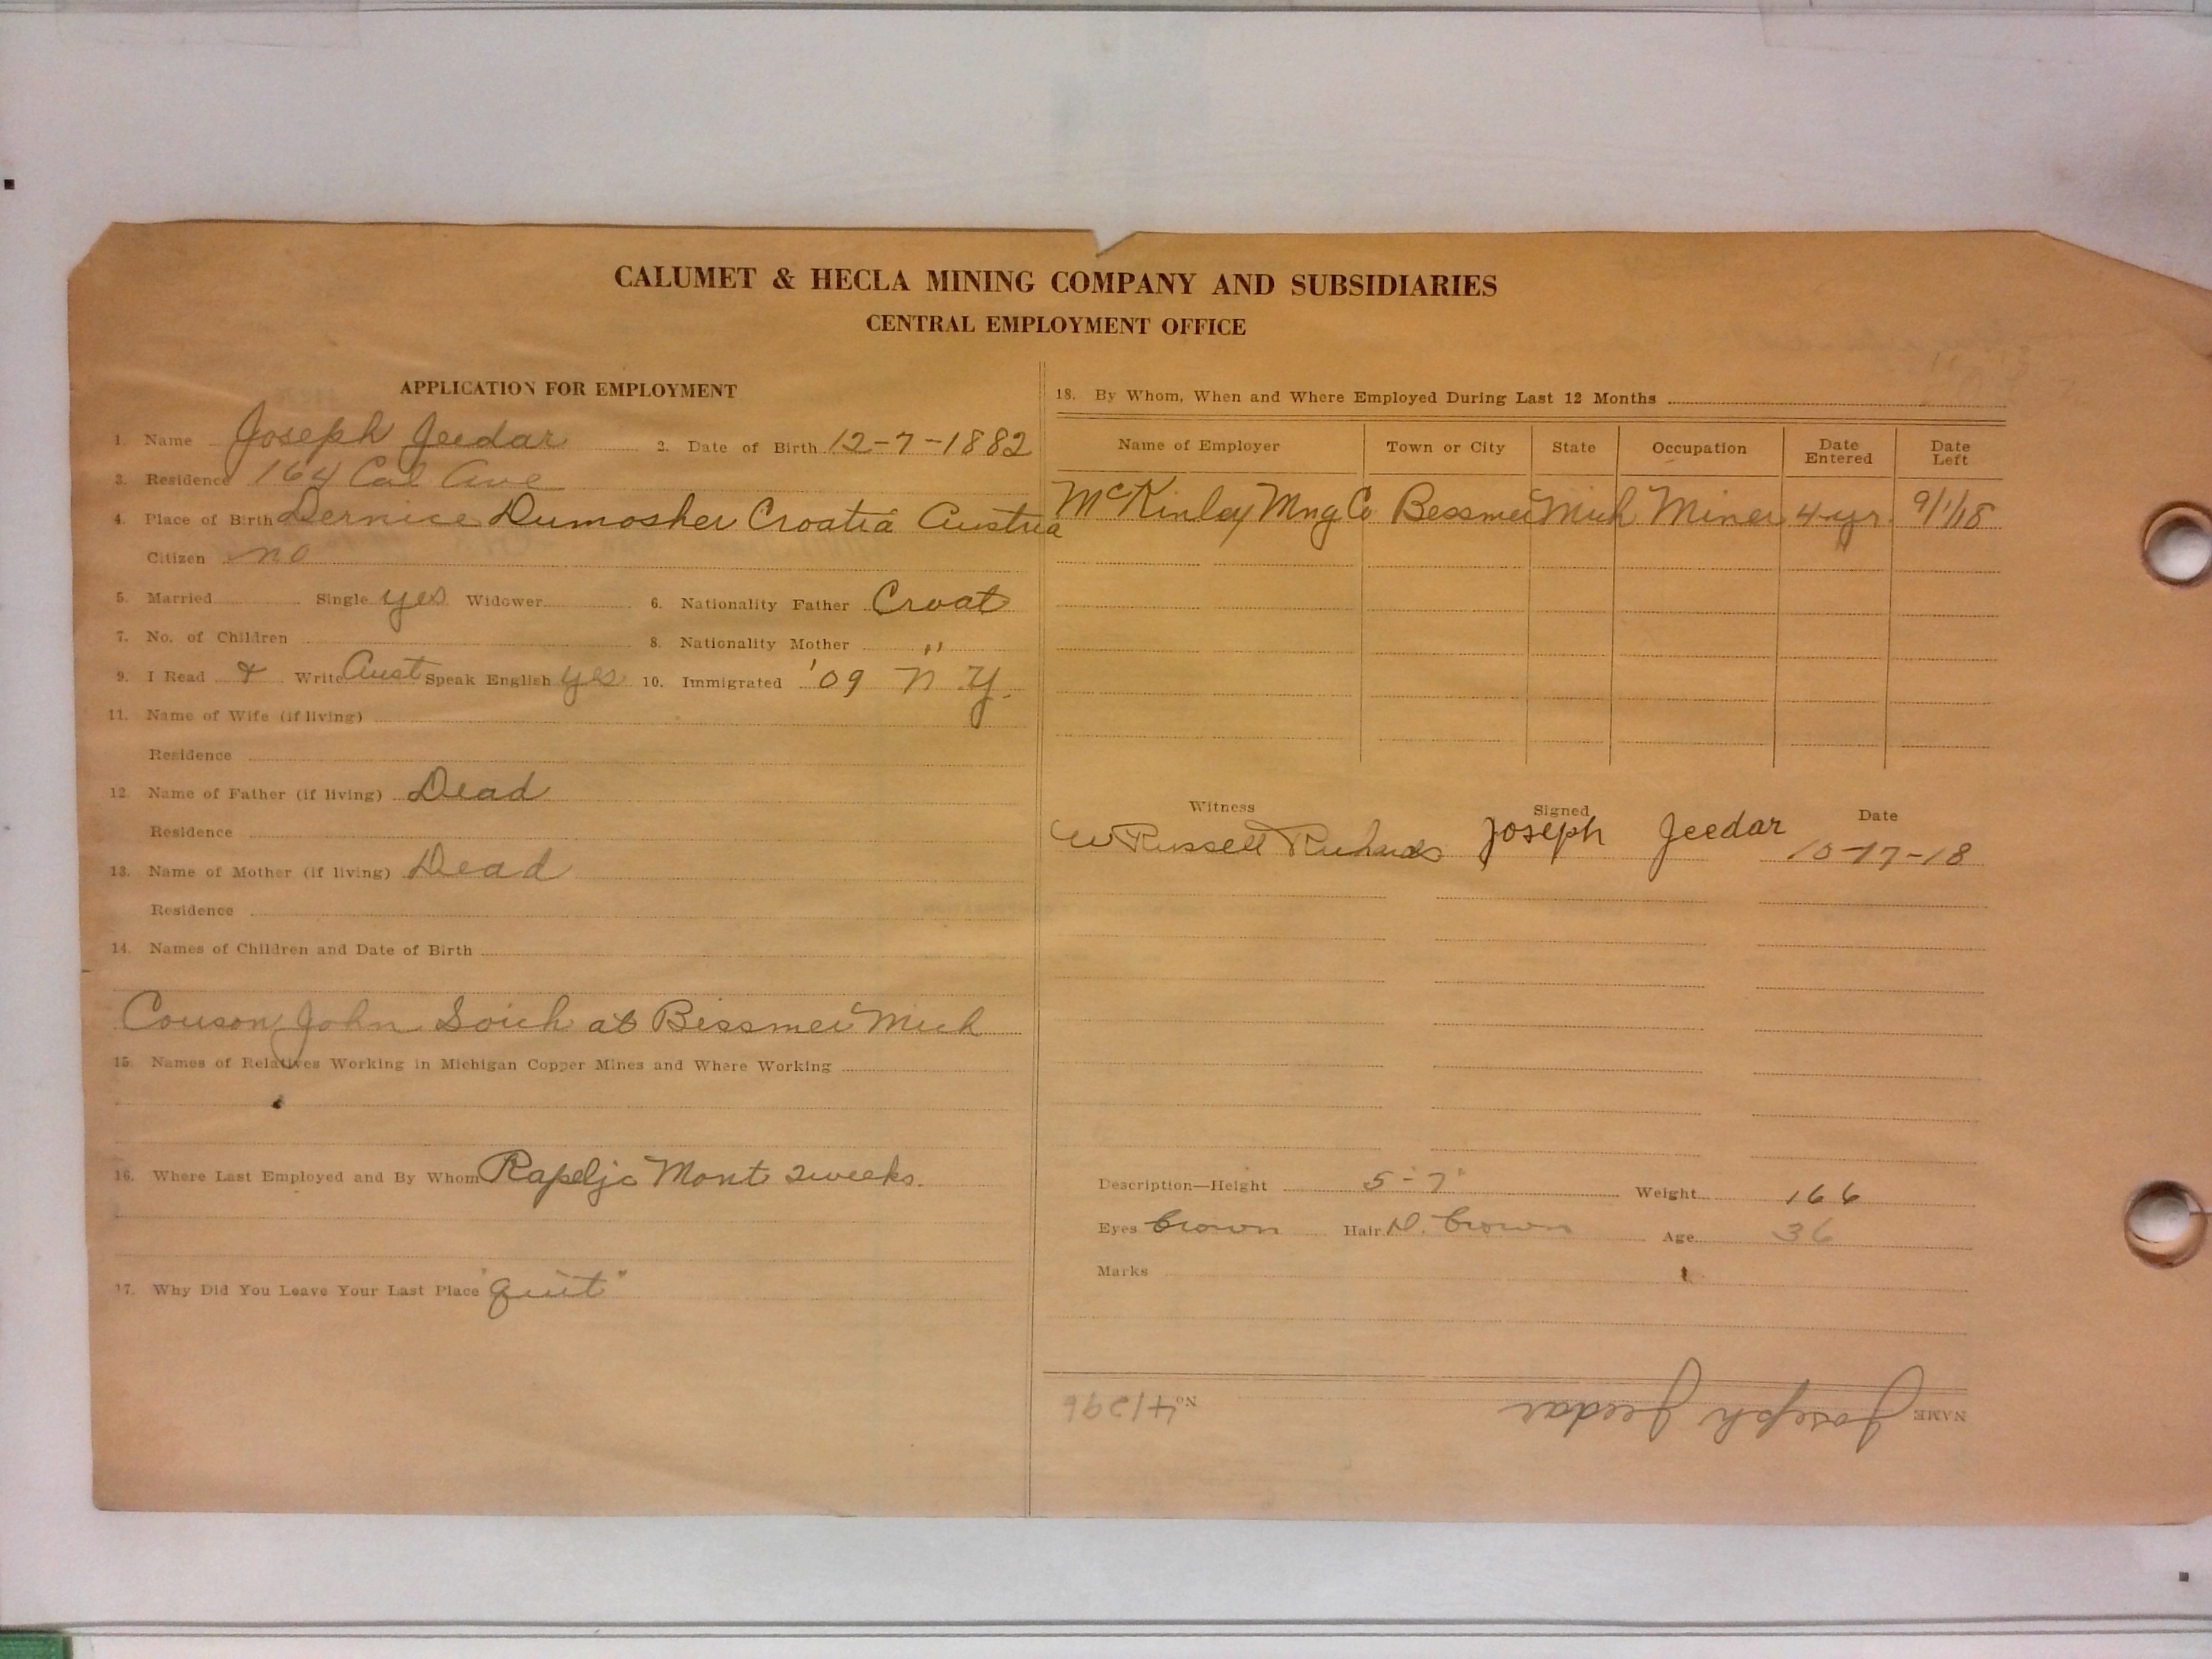 CALUMET & HECLA MINING COMPANY AND SUBSIDIARIES
CENTRAL EMPLOYMENT OFFICE
APPLICATION FOR EMPLOYMENT
1. Name Joseph Jeedar 2. Date of Birth 12-7-1882
3. Residence 164 Cal Ave
4. Place of Birth Dernice Dumosher Croatia Austria
Citizen no
5. Married Single yes Widower 6. Nationality Father Croat
7. No. of Children 8. Nationality Mother "
9. I Read & Write Aust Speak English yes 10. Immigrated '09 N.Y.
11. Name of Wife (if living)
Residence
12. Name of Father (if living) Dead
Residence
13. Name of Mother (if living) Dead
Residence
14. Names of Children and Date of Birth
Couson John Soich at Bessmer Mich
15. Names of Relatives Working in Michigan Copper Mines and Where Working
16. Where Last Employed and By Whom Rapelje Mont 2 weeks.
17. Why Did You Leave Your Last Place "quit"
18. By Whom, When and Where Employed During Last 12 Months
Name of Employer Town or City State Occupation Date Entered Date Left
McKinley Mng Co Bessmer Mich Miner 4 yr. 9/1/18
Witness Signed Date
W Russell Richards Joseph Jeedar 10-17-18
Description—Height 5'-7" Weight 166
Eyes brown Hair D. brown Age 36
Marks
NAME Joseph Jeedar No. 41296